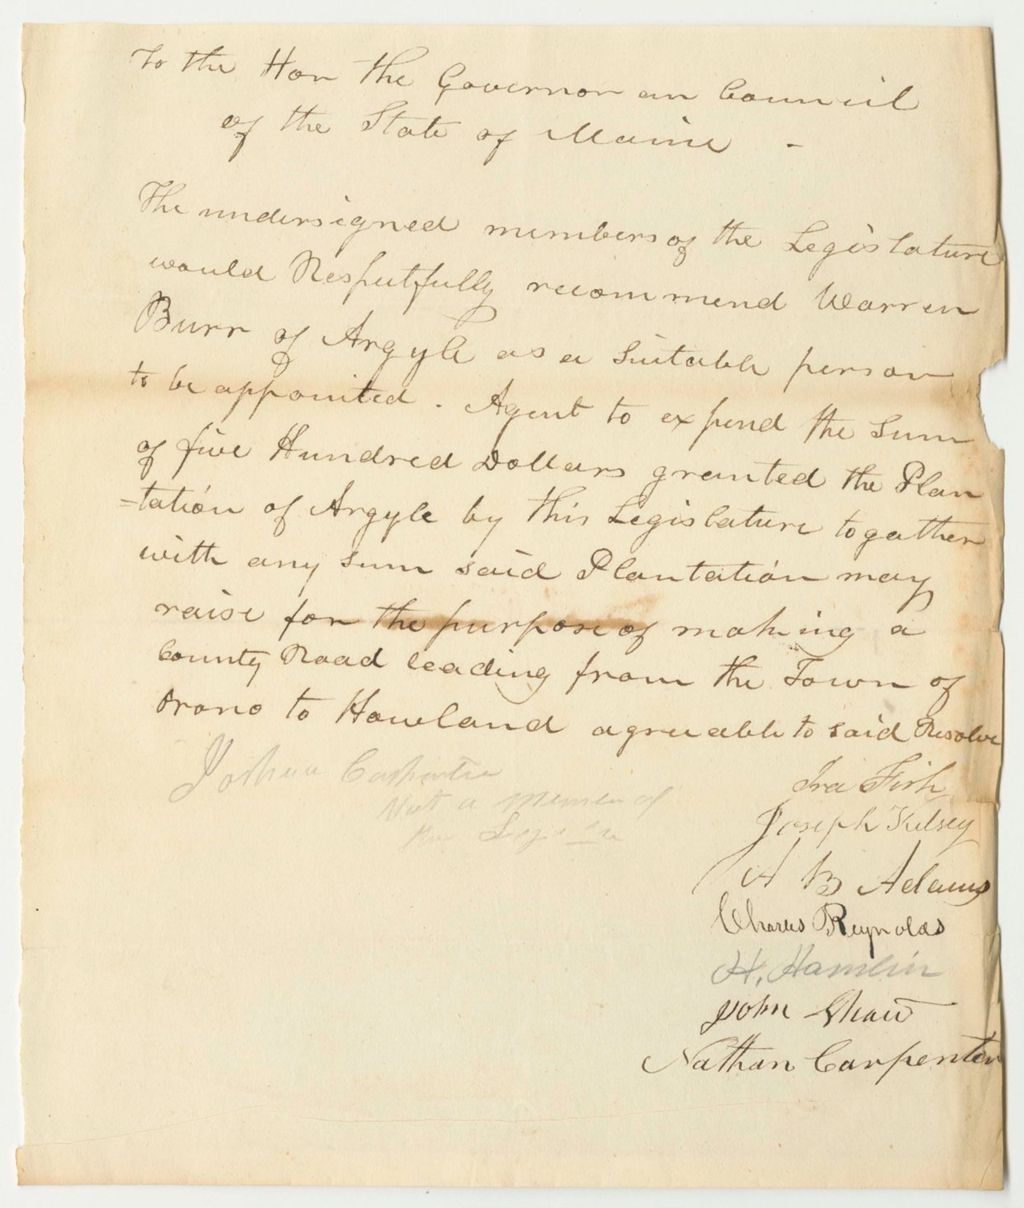 To the Hon the Governor an Council
of the State of Maine -
The undersigned members of the Legislature
would Respectfully recommend Warren
Burr of Argyle as a Suitable person
to be appointed. Agent to expend the Sum
of five Hundred Dollars granted the Plan
=tation of Argyle by this Legislature togather
with any sum said Plantation may
raise for the purpose of making a
County Road leading from the Town of
Orono to Howland agreeable to said Resolve
Joshua Carpenter
Not a Member of
the Legis
Ira Fish
Joseph Kelsey
A B Adams
Charles Reynolds
H. Hamlin
John Shaw
Nathan Carpenter